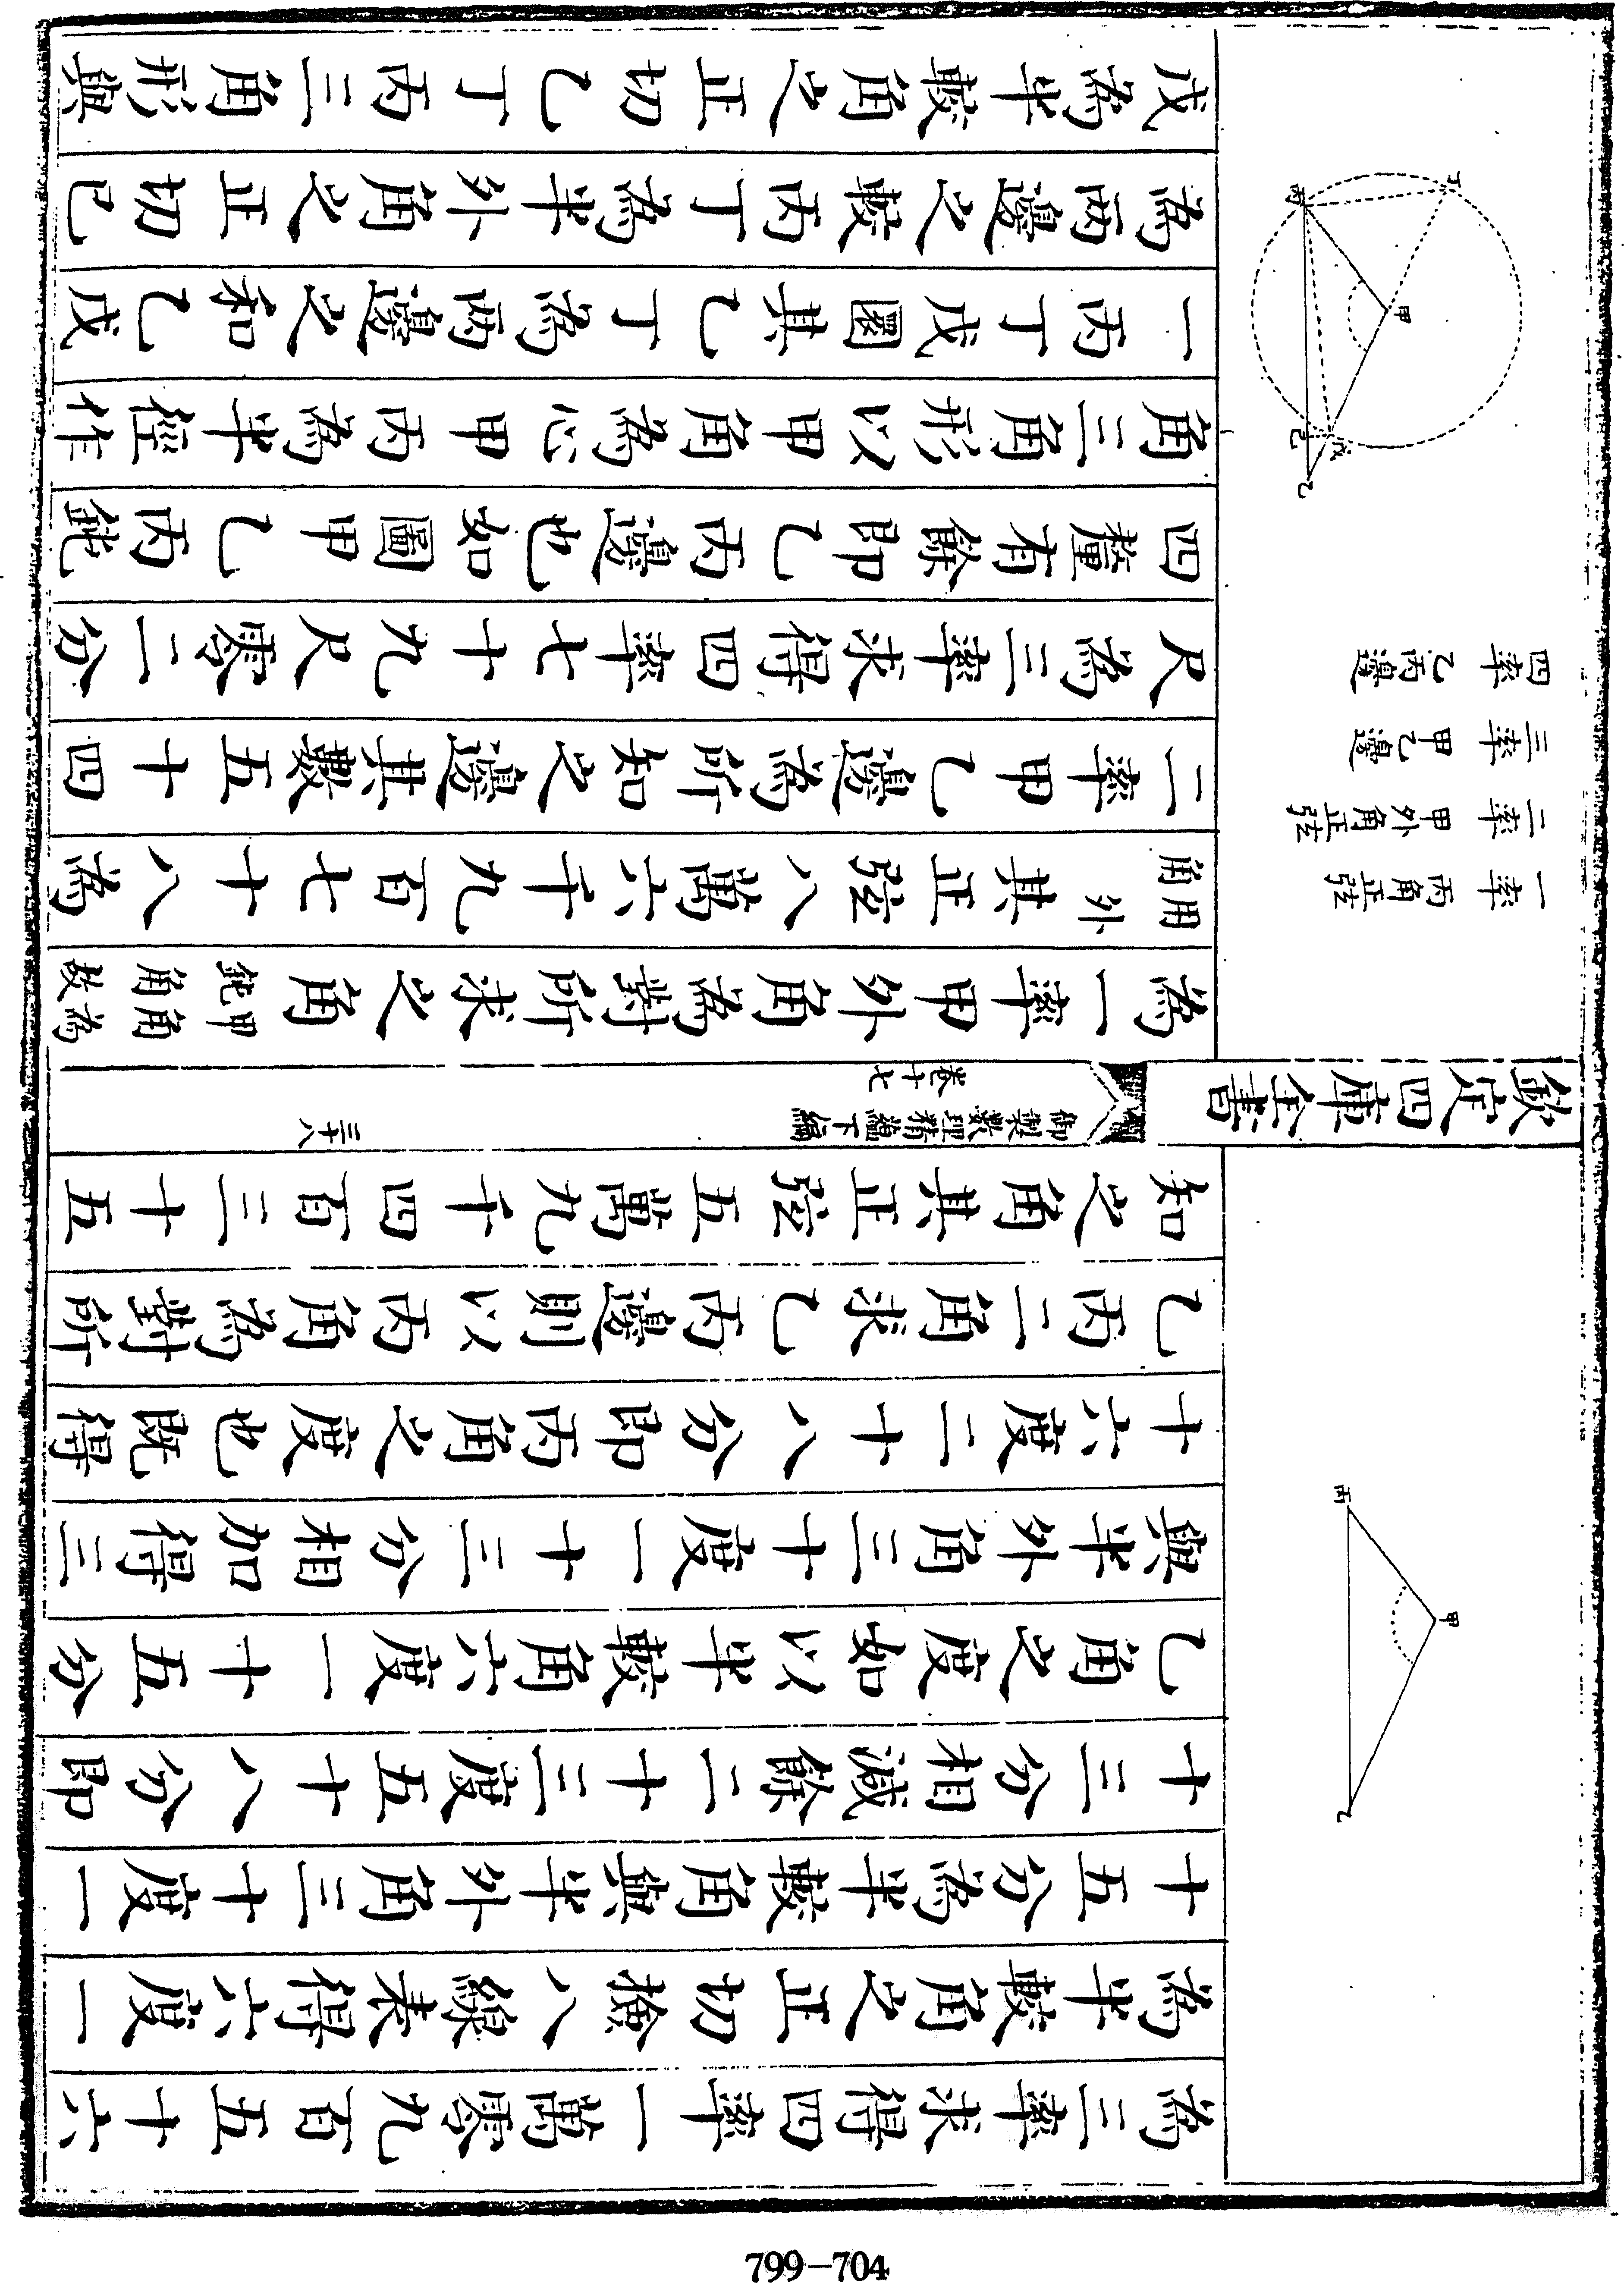 為三率求得四率一萬零九百五十六
為半較角之正切檢八線表得六度一
十五分為半較角與半外角三十度一
十三分相減餘二十三度五十八分即
乙角之度如以半較角六度一十五分
與半外角三十度一十三分相加得三
十六度二十八分即丙角之度也既得
乙丙二角求乙丙邊則以丙角為對所
知之角其正弦五萬九千四百三十五
丙
甲
乙
欽定四庫全書
御製數理精藴下編
卷十七
三十八
為一率甲外角為對所求之角甲角為鈍角故
用外角其正弦八萬六千九百七十八為
二率甲乙邊為所知之邊其數五十四
尺為三率求得四率七十九尺零二分
四釐有餘即乙丙邊也如圖甲乙丙鈍
角三角形以甲角為心甲丙為半徑作
一丙丁戊圜其乙丁為兩邊之和乙戊
為兩邊之較丙丁為半外角之正切己
戊為半較角之正切乙丁丙三角形與
一率 丙角正弦
二率 甲外角正弦
三率 甲乙邊
四率 乙丙邊
丁
丙
甲
己
戊
乙
799-704